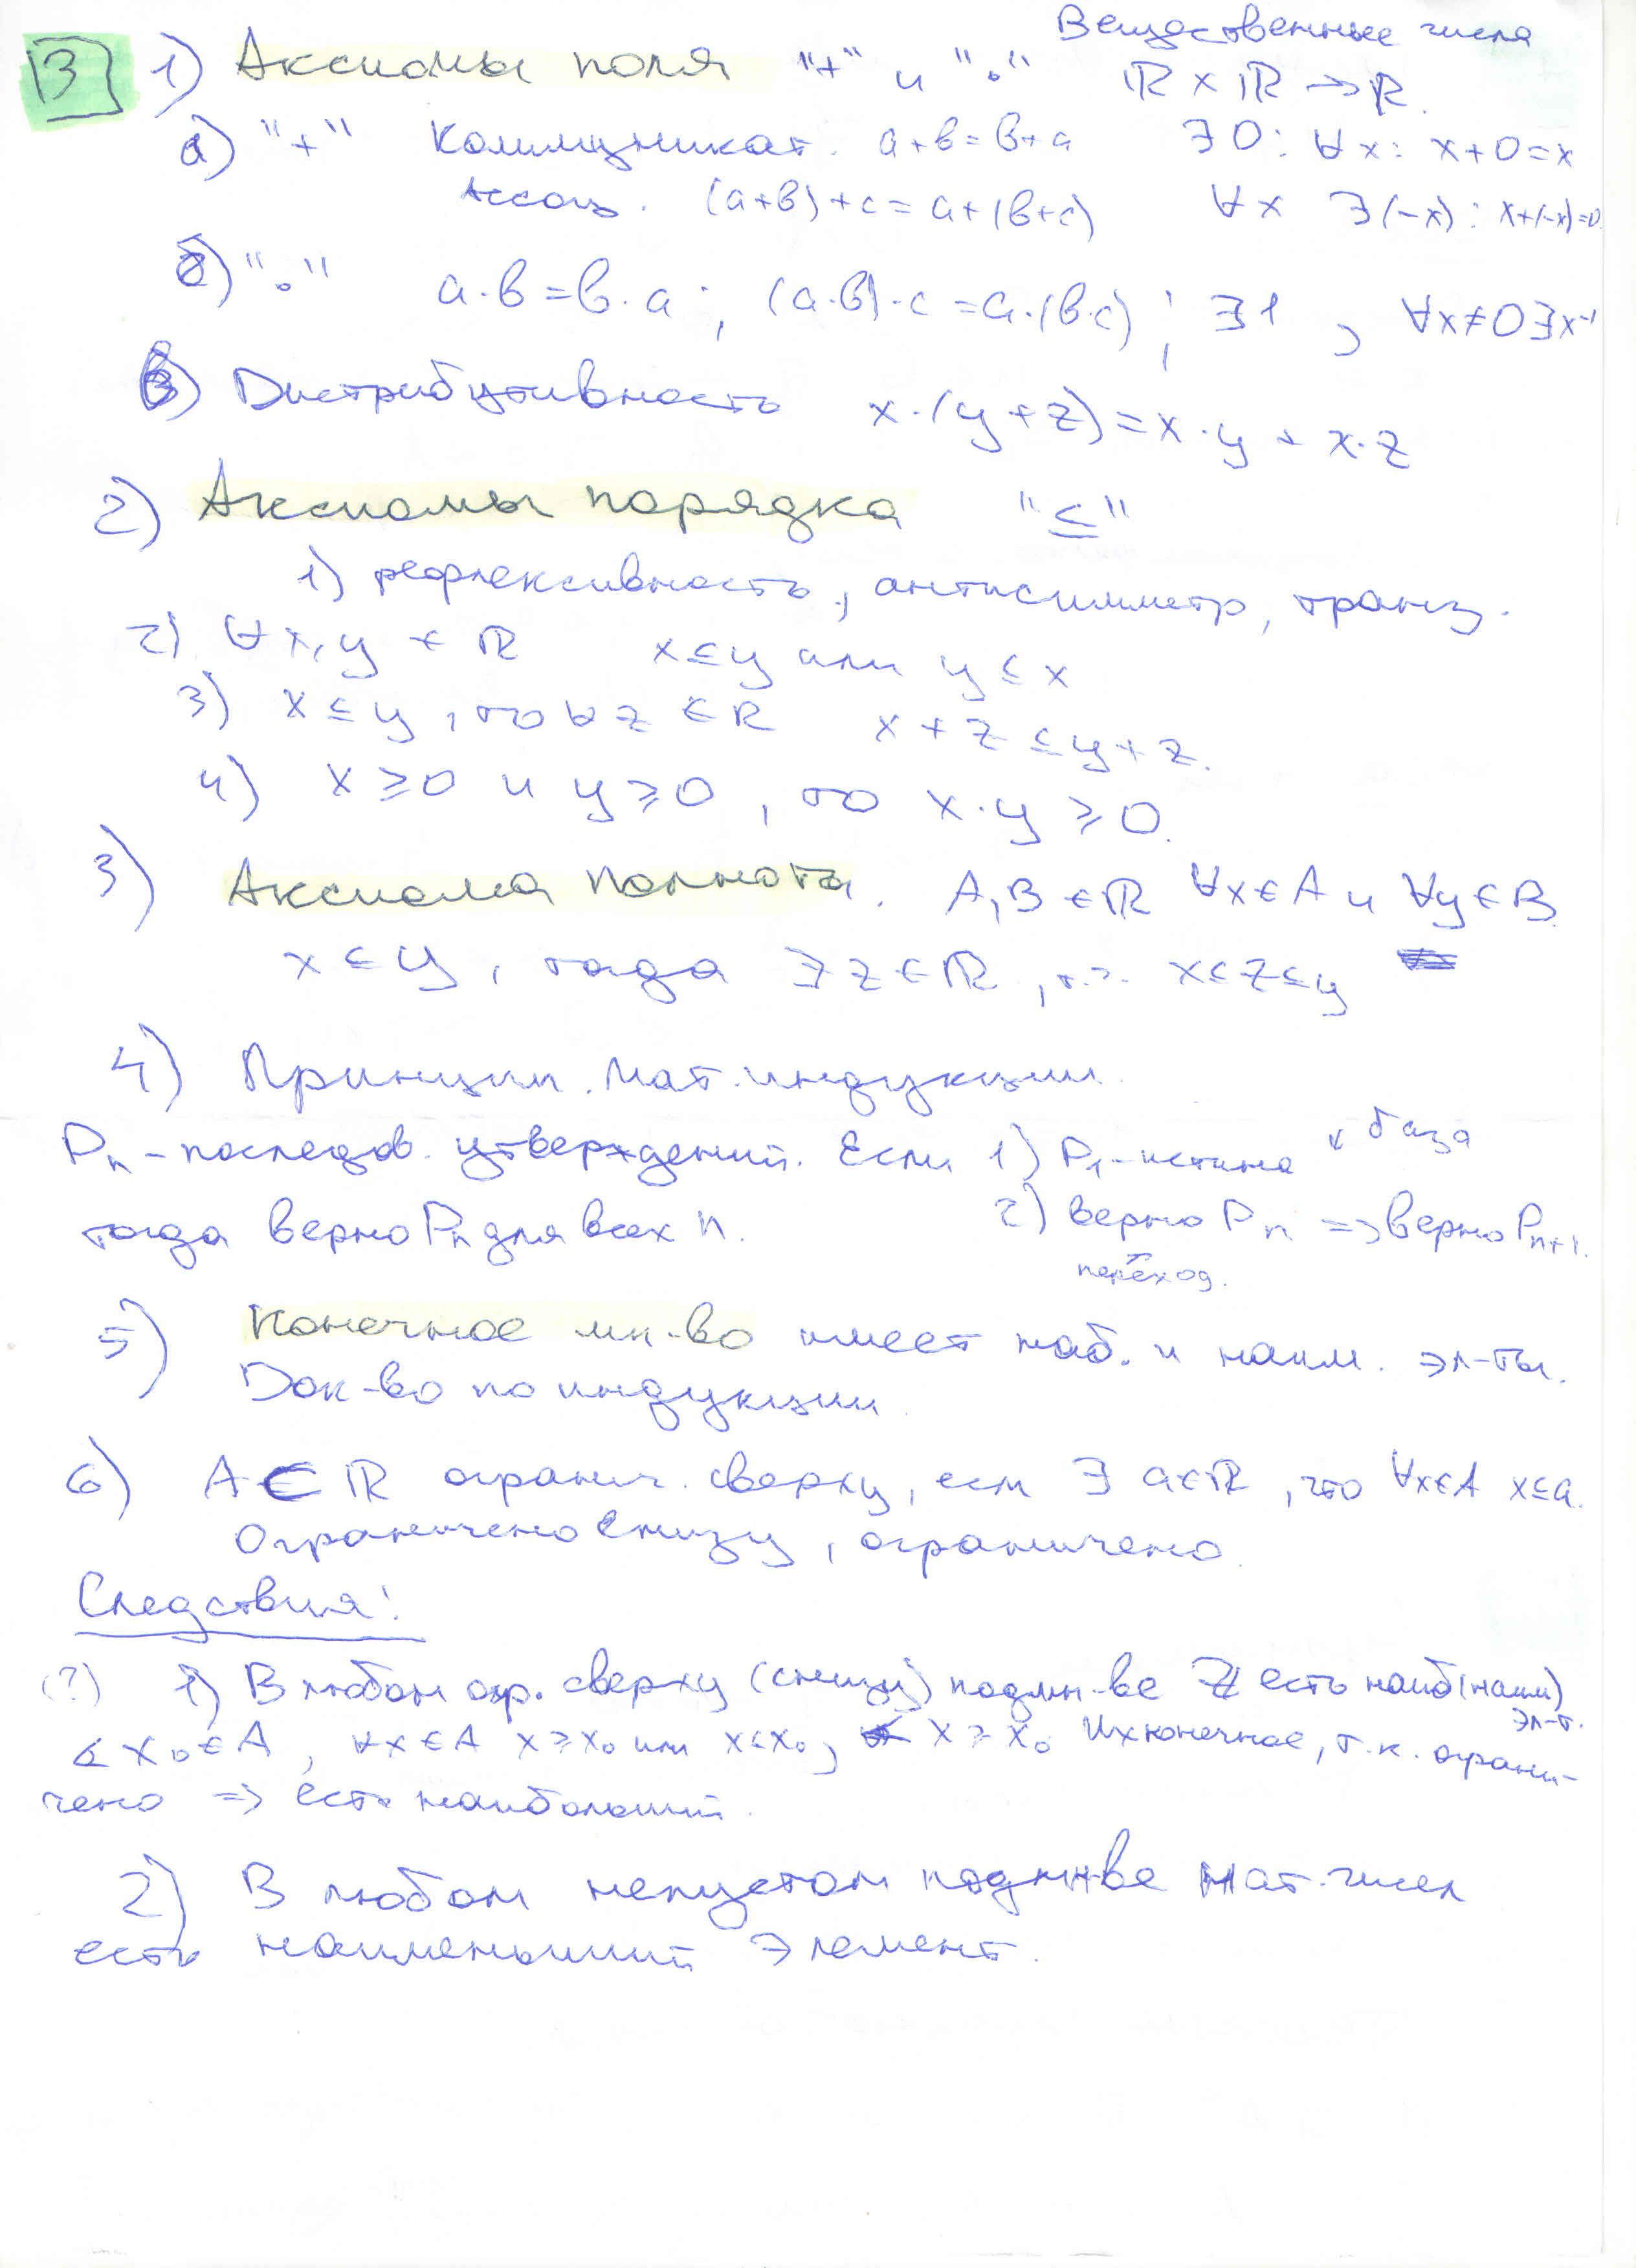 Вещественные числа
3 1) Аксиомы поля "+" и "·" ℝ × ℝ → ℝ.
а) "+" Коммуникат. a+b=b+a ∃ 0: ∀x: x+0=x
Ассоц. (a+b)+c=a+(b+c) ∀x ∃(-x): x+(-x)=0.
б) "·" a·b=b·a; (a·b)·c=a·(b·c); ∃1, ∀x≠0 ∃x⁻¹
в) Дистрибутивность x·(y+z)=x·y+x·z
2) Аксиомы порядка "≤"
1) рефлексивность, антисимметр, транз.
2) ∀x,y ∈ ℝ x≤y или y≤x
3) x≤y, то ∀z∈ℝ x+z≤y+z.
4) x≥0 и y≥0, то x·y≥0.
3) Аксиома полноты. A,B∈ℝ ∀x∈A и ∀y∈B
x≤y, тогда ∃z∈ℝ, т.ч. x≤z≤y
4) Принцип. мат. индукции.
Pₙ – последов. утверждений. Если 1) P₁-истина ← база
тогда верно Pₙ для всех n. 2) верно Pₙ ⇒ верно Pₙ₊₁.
переход.
5) Конечное мн-во имеет наб. и наим. эл-ты.
Док-во по индукции.
6) A⊂ℝ огранич. сверху, если ∃ a∈ℝ, что ∀x∈A x≤a.
Ограничено снизу, ограничено.
Следствия:
(?) 1) В любом огр. сверху (снизу) подмн-ве ℤ есть наиб(наим)
эл-т.
∢ x₀∈A, ∀x∈A x≥x₀ или x≤x₀, x≥x₀ Их конечное, т.к. ограни-
чено ⇒ есть наибольший.
2) В любом непустом подмн-ве нат. чисел
есть наименьший элемент.